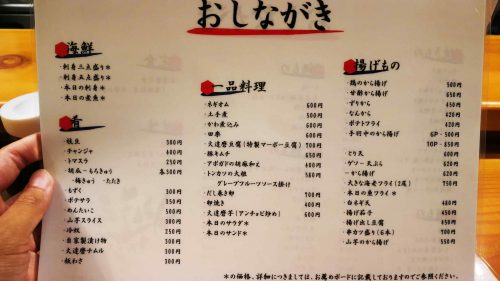 おしながき
海鮮
・刺身三点盛り＊
・刺身五点盛り＊
・本日の刺身＊
・本日の煮魚＊
肴
・枝豆 300円
・チャンジャ 400円
・トマスラ 250円
・胡瓜－もろきゅう 各300円
－梅きゅう －たたき
・もずく 300円
・ポテサラ 350円
・めんたいこ 350円
・山芋スライス 300円
・冷奴 250円
・自家製漬け物 300円
・ナムル 300円
・板わさ 350円
一品料理
・ネギオム 600円
・土手煮 500円
・かわ煮込み 600円
・田楽 600円
・久達磨豆腐(特製マーボー豆腐) 700円
・豚キムチ 650円
・アボガドの胡麻和え 400円
・トンカツの大根 580円
グレープフルーツソース掛け
・だし巻き卵 500円
・卵焼き 400円
・久達磨芋(アンチョビ炒め) 600円
・本日のサラダ＊
・本日のサンド＊
揚げもの
・鶏のから揚げ 500円
・甘酢から揚げ 650円
・ずりから 450円
・なんから 420円
・ポテトフライ 420円
・手羽中のから揚げ 6P・500円
10P・850円
・とり天 600円
・ゲソ－天ぷら 620円
－から揚げ 620円
・大きな海老フライ(2尾) 750円
・本日の魚フライ＊
・白ネギ天 480円
・揚げ茄子 450円
・揚げ出し豆腐 450円
・串カツ盛り(6本) 700円
・山芋のから揚げ 550円
＊の価格、詳細につきましては、お薦めボードに記載しておりますのでご参照ください。